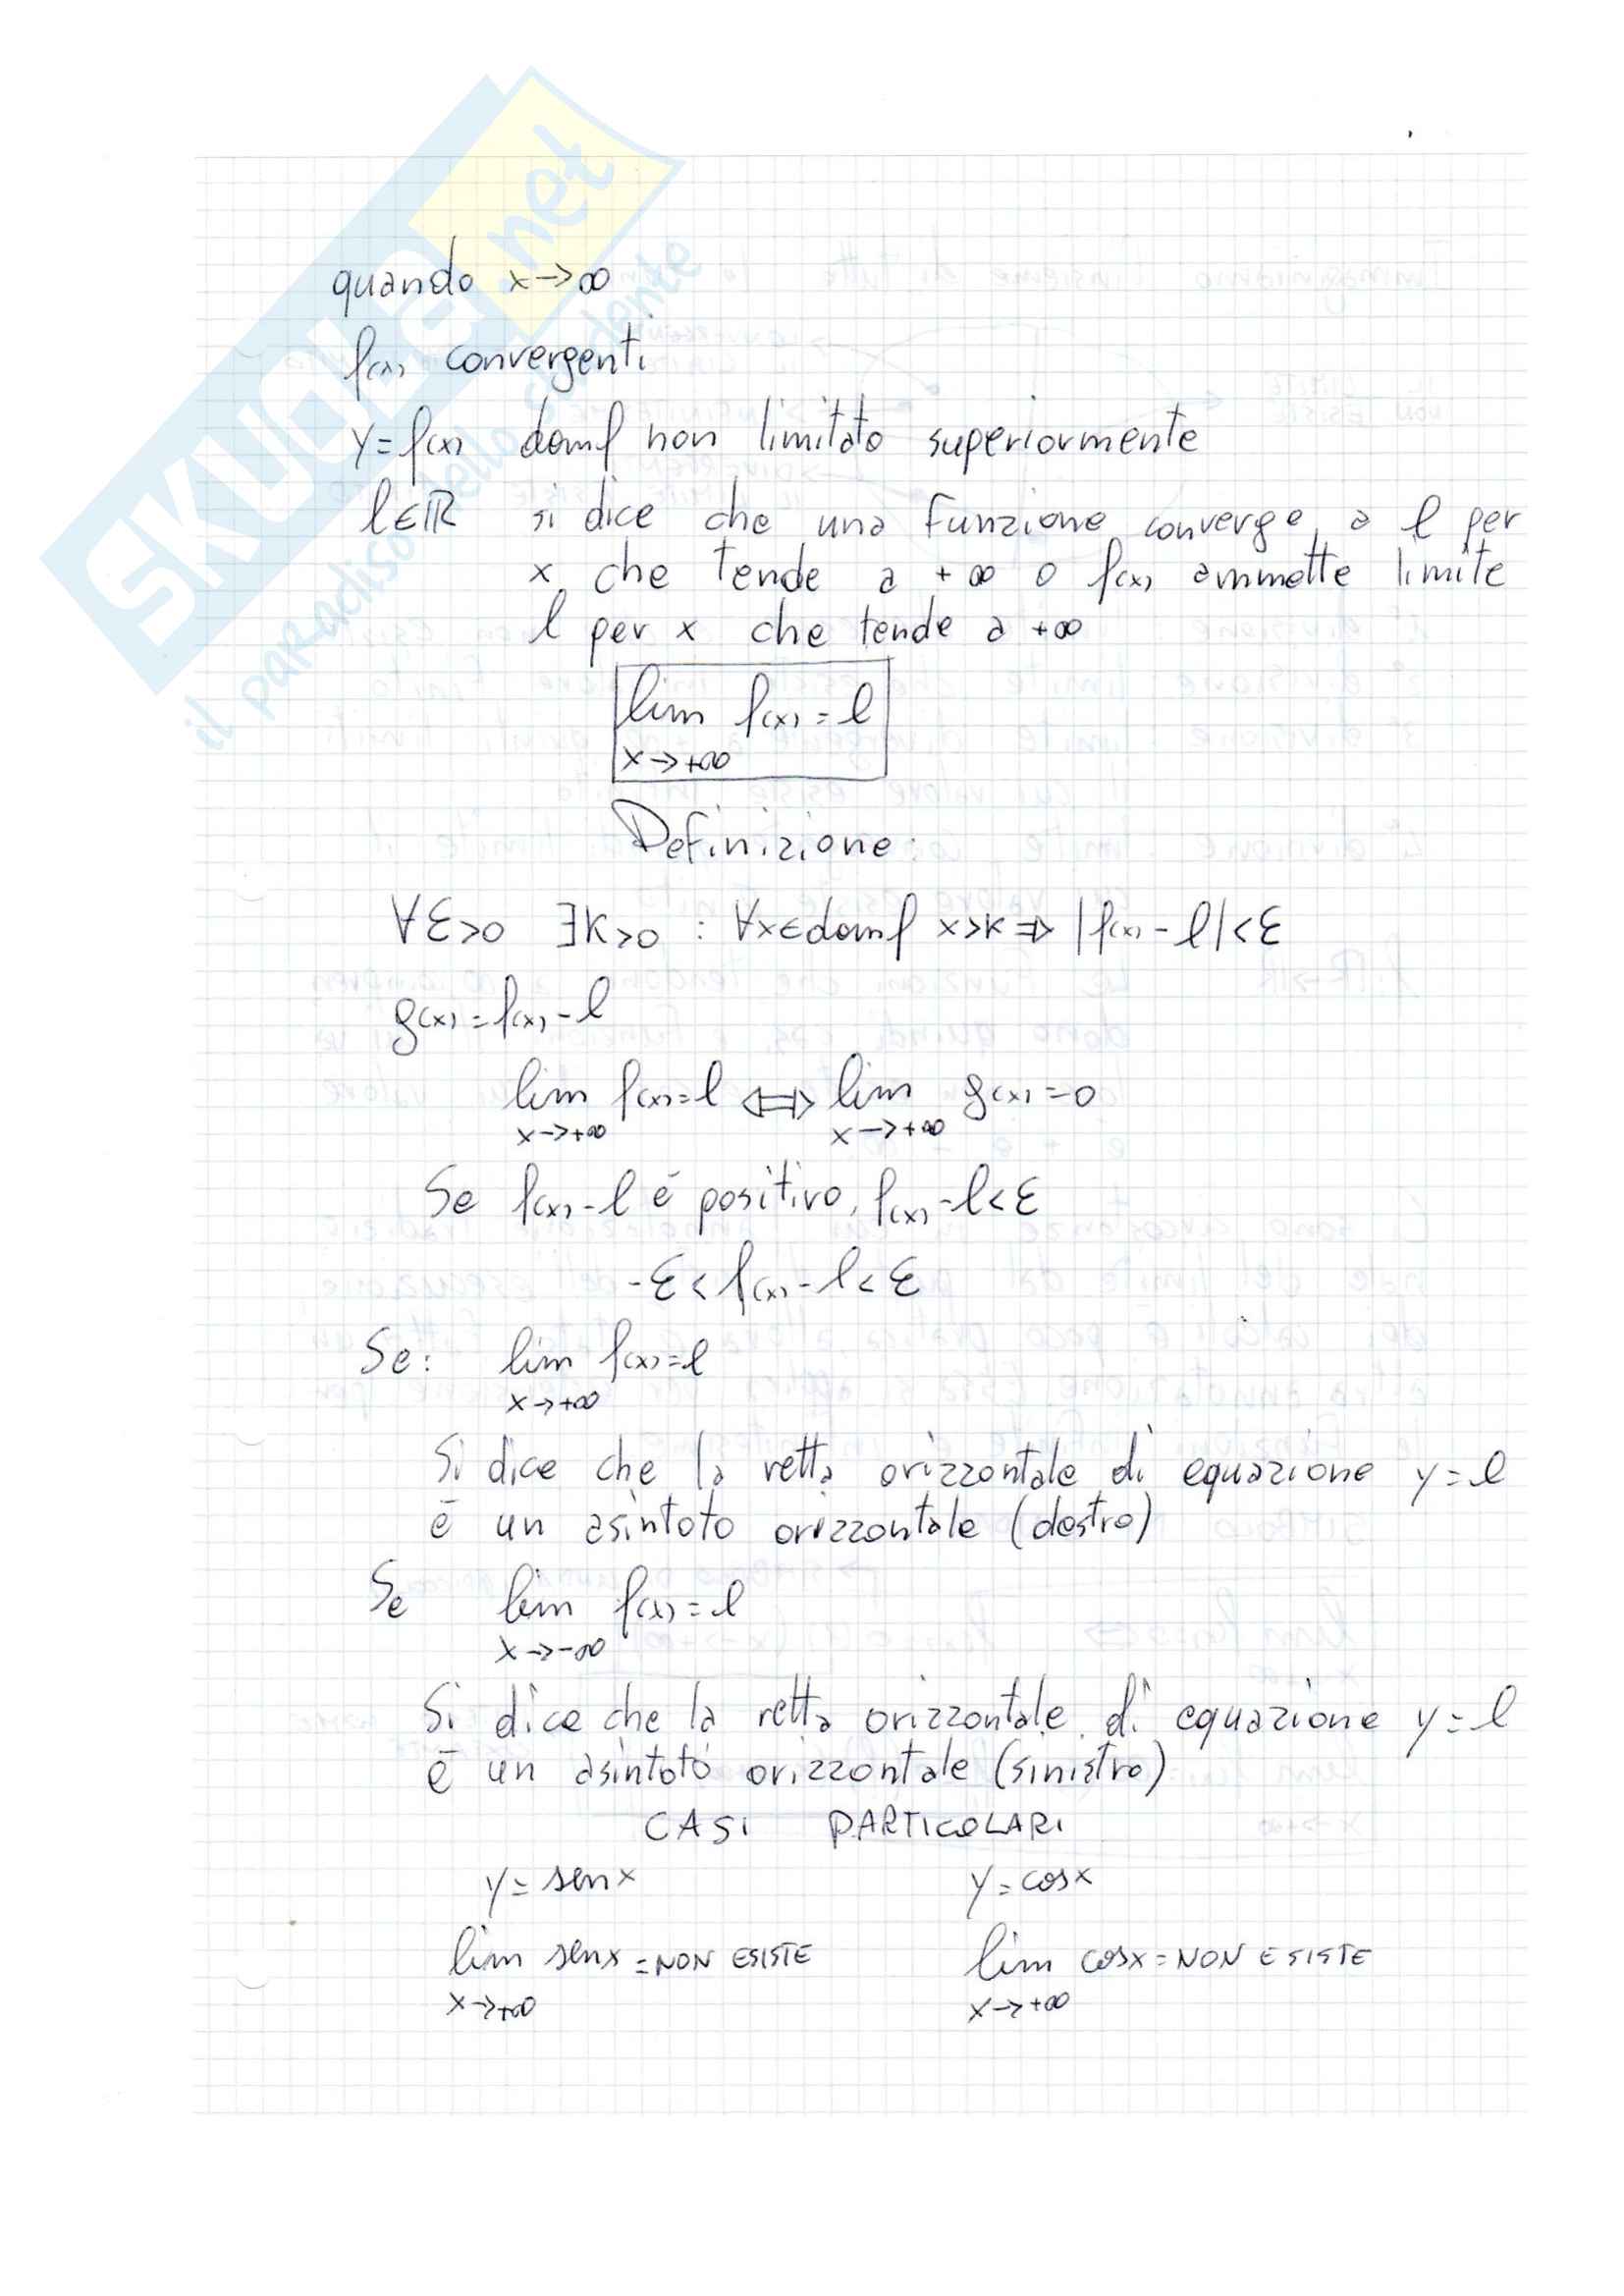 SKUOLA.net
il paradiso dello studente
quando x→∞
f(x) convergenti
y=f(x) domf non limitato superiormente
l∈ℝ si dice che una funzione converge a l per
x che tende a +∞ o f(x) ammette limite
l per x che tende a +∞
lim f(x) = l
x→+∞
Definizione:
∀ε>0 ∃K>0 : ∀x∈domf x>K ⇒ |f(x) - l| < ε
g(x) = f(x) - l
lim f(x) = l ⟺ lim g(x) = 0
x→+∞ x→+∞
Se f(x) - l è positivo, f(x) - l < ε
-ε < f(x) - l < ε
Se: lim f(x) = l
x→+∞
Si dice che la retta orizzontale di equazione y = l
è un asintoto orizzontale (destro)
Se lim f(x) = l
x→-∞
Si dice che la retta orizzontale di equazione y = l
è un asintoto orizzontale (sinistro)
CASI PARTICOLARI
y = senx y = cosx
lim senx = NON ESISTE lim cosx = NON ESISTE
x→+∞ x→+∞